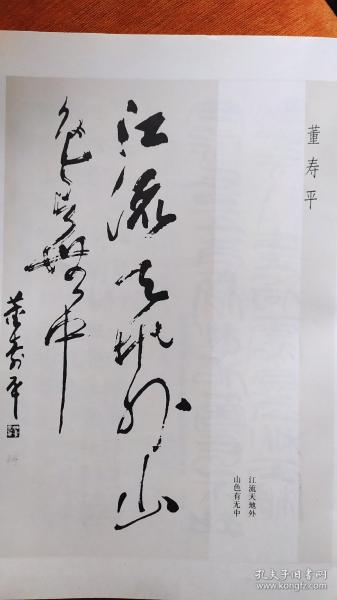 董寿平
江流天地外山
色有无中
董寿平
江流天地外
山色有无中
孔夫子旧书网
www.kongfz.com